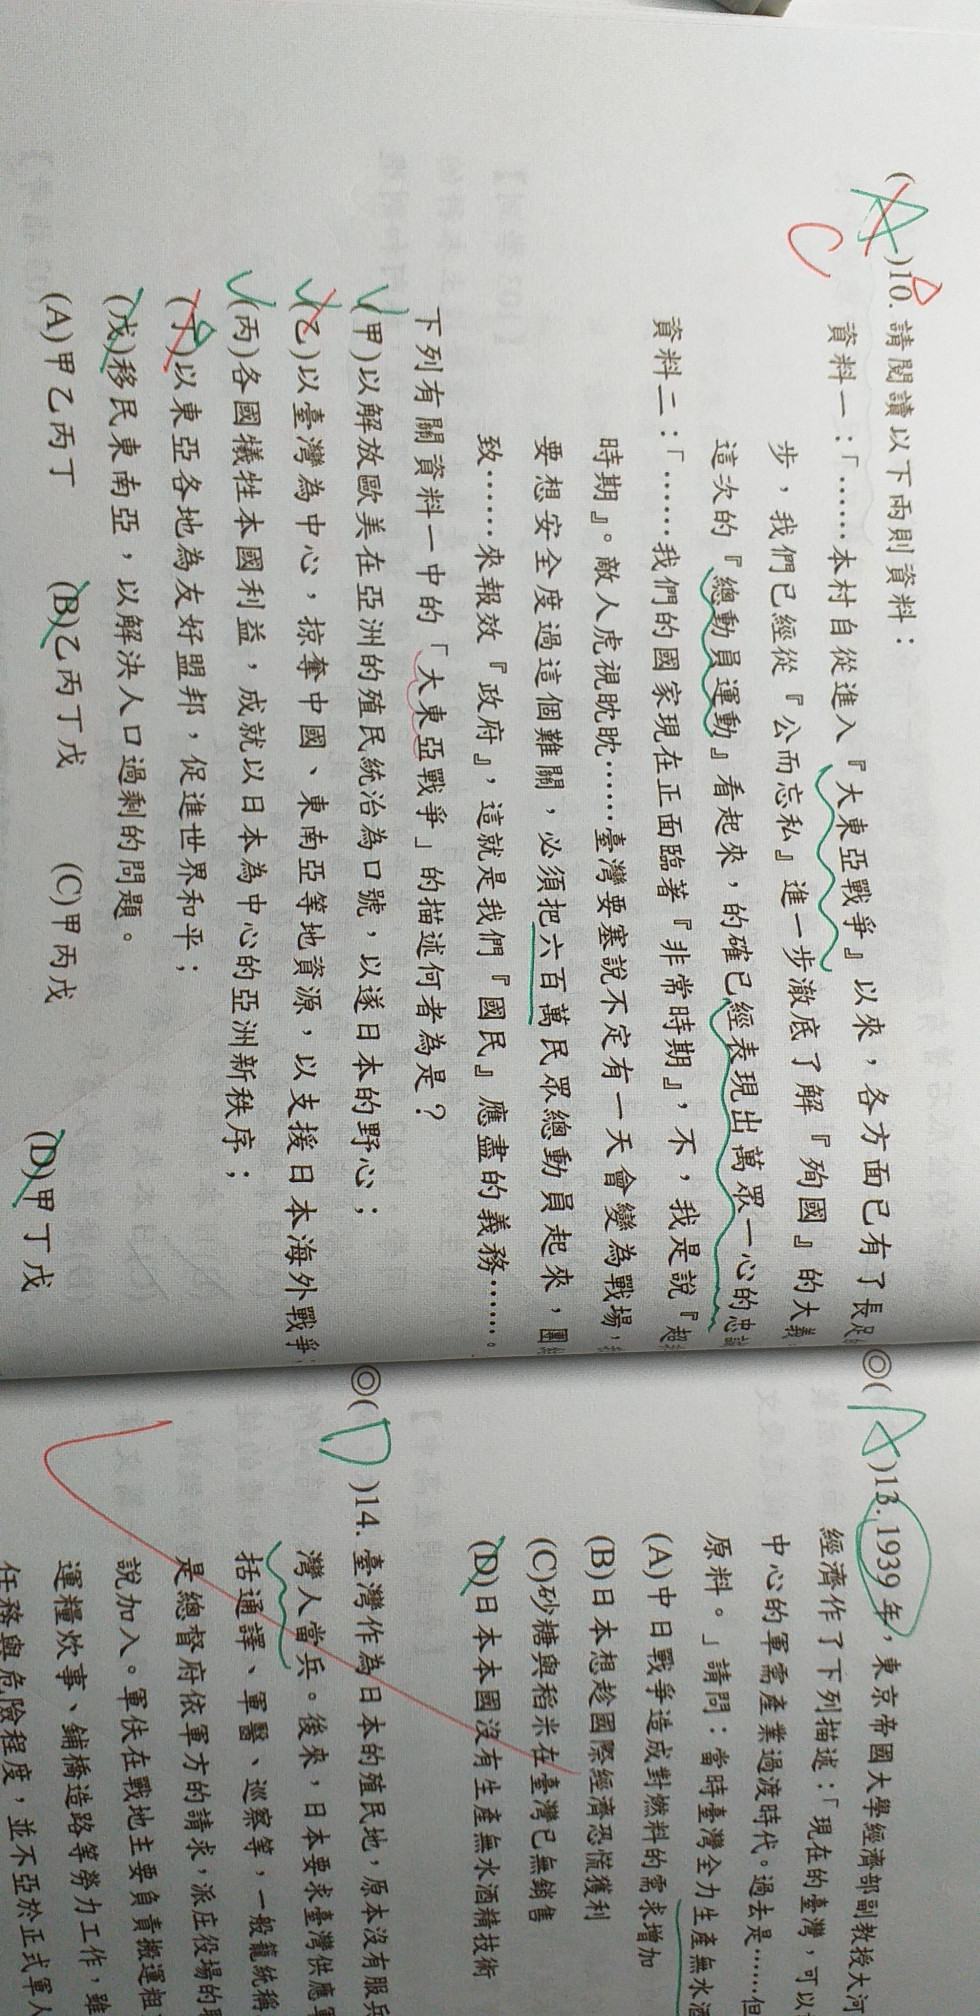 (A)10. 請閱讀以下兩則資料：
C
資料一：「……本村自從進入『大東亞戰爭』以來，各方面已有了長足
步，我們已經從『公而忘私』進一步澈底了解『殉國』的大義
這次的『總動員運動』看起來，的確已經表現出萬眾一心的忠誠
資料二：「……我們的國家現在正面臨著『非常時期』，不，我是說『超
時期』。敵人虎視眈眈……臺灣要塞說不定有一天會變為戰場，
要想安全度過這個難關，必須把六百萬民眾總動員起來，團結
致……來報效『政府』，這就是我們『國民』應盡的義務……。
下列有關資料一中的「大東亞戰爭」的描述何者為是？
(甲)以解放歐美在亞洲的殖民統治為口號，以遂日本的野心；
(乙)以臺灣為中心，掠奪中國、東南亞等地資源，以支援日本海外戰爭
(丙)各國犧牲本國利益，成就以日本為中心的亞洲新秩序；
(丁)以東亞各地為友好盟邦，促進世界和平；
(戊)移民東南亞，以解決人口過剩的問題。
(A)甲乙丙丁 (B)乙丙丁戊 (C)甲丙戊 (D)甲丁戊
◎(A)13. 1939年，東京帝國大學經濟部副教授大河
經濟作了下列描述：「現在的臺灣，可以
中心的軍需產業過渡時代。過去是……但
原料。」請問：當時臺灣全力生產無水酒
(A)中日戰爭造成對燃料的需求增加
(B)日本想趁國際經濟恐慌獲利
(C)砂糖與稻米在臺灣已無銷售
(D)日本本國沒有生產無水酒精技術
◎(D)14. 臺灣作為日本的殖民地，原本沒有服兵
灣人當兵。後來，日本要求臺灣供應軍
括通譯、軍醫、巡察等，一般籠統稱
是總督府依軍方的請求，派庄役場的
說加入。軍伕在戰地主要負責搬運粗
運糧炊事、鋪橋造路等勞力工作，雖
任務與危險程度，並不亞於正式軍人